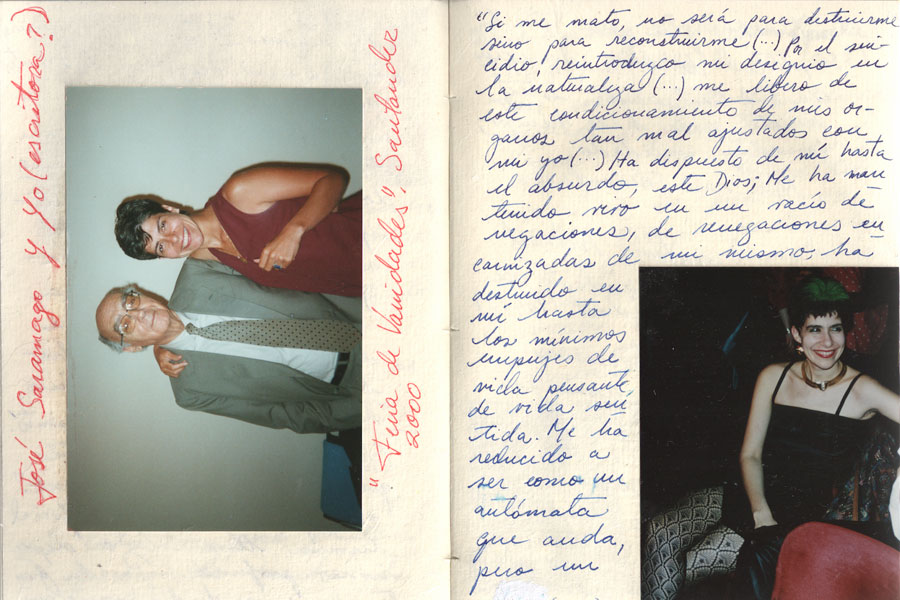 José Saramago y Yo (escritora?)
"Feria de Vanidades", Santander
2000
"Si me mato, no será para destruirme
sino para reconstruirme (...) Por el sui-
cidio, reintroduzco mi designio en
la naturaleza (...) me libero de
este condicionamiento de mis or-
ganos tan mal ajustados con
mi yo (...) Ha dispuesto de mí hasta
el absurdo, este Dios; Me ha man
tenido vivo en un vacío de
negaciones, de renegaciones en
carnizadas de mi mismo, ha
destruido en
mí hasta
los mínimos
empujes de
vida pensante,
de vida sen
tida. Me ha
reducido a
ser como un
autómata
que anda,
pero un